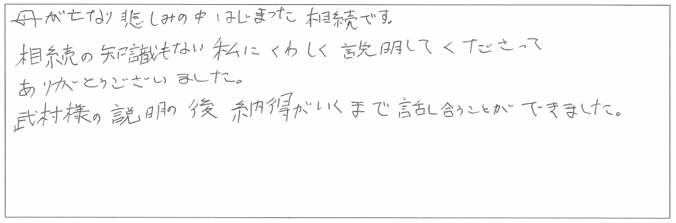 母が亡なり悲しみの中はじまった相続です。
相続の知識もない私にくわしく説明してくださって
ありがとうございました。
武村様の説明の後納得がいくまで話し合うことができました。